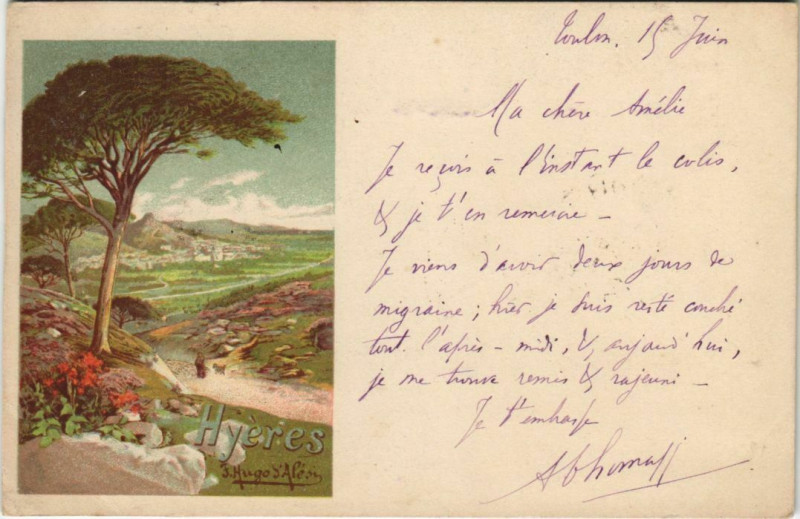 Toulon. 15 Juin
Ma chère Amélie
Je reçois à l'instant le colis,
& je t'en remercie –
Je viens d'avoir deux jours de
migraine ; hier je suis resté couché
tout l'après-midi, &, aujourd'hui,
je me trouve remis & rajeuni –
Je t'embrasse
Hyères
F. Hugo d'Alési